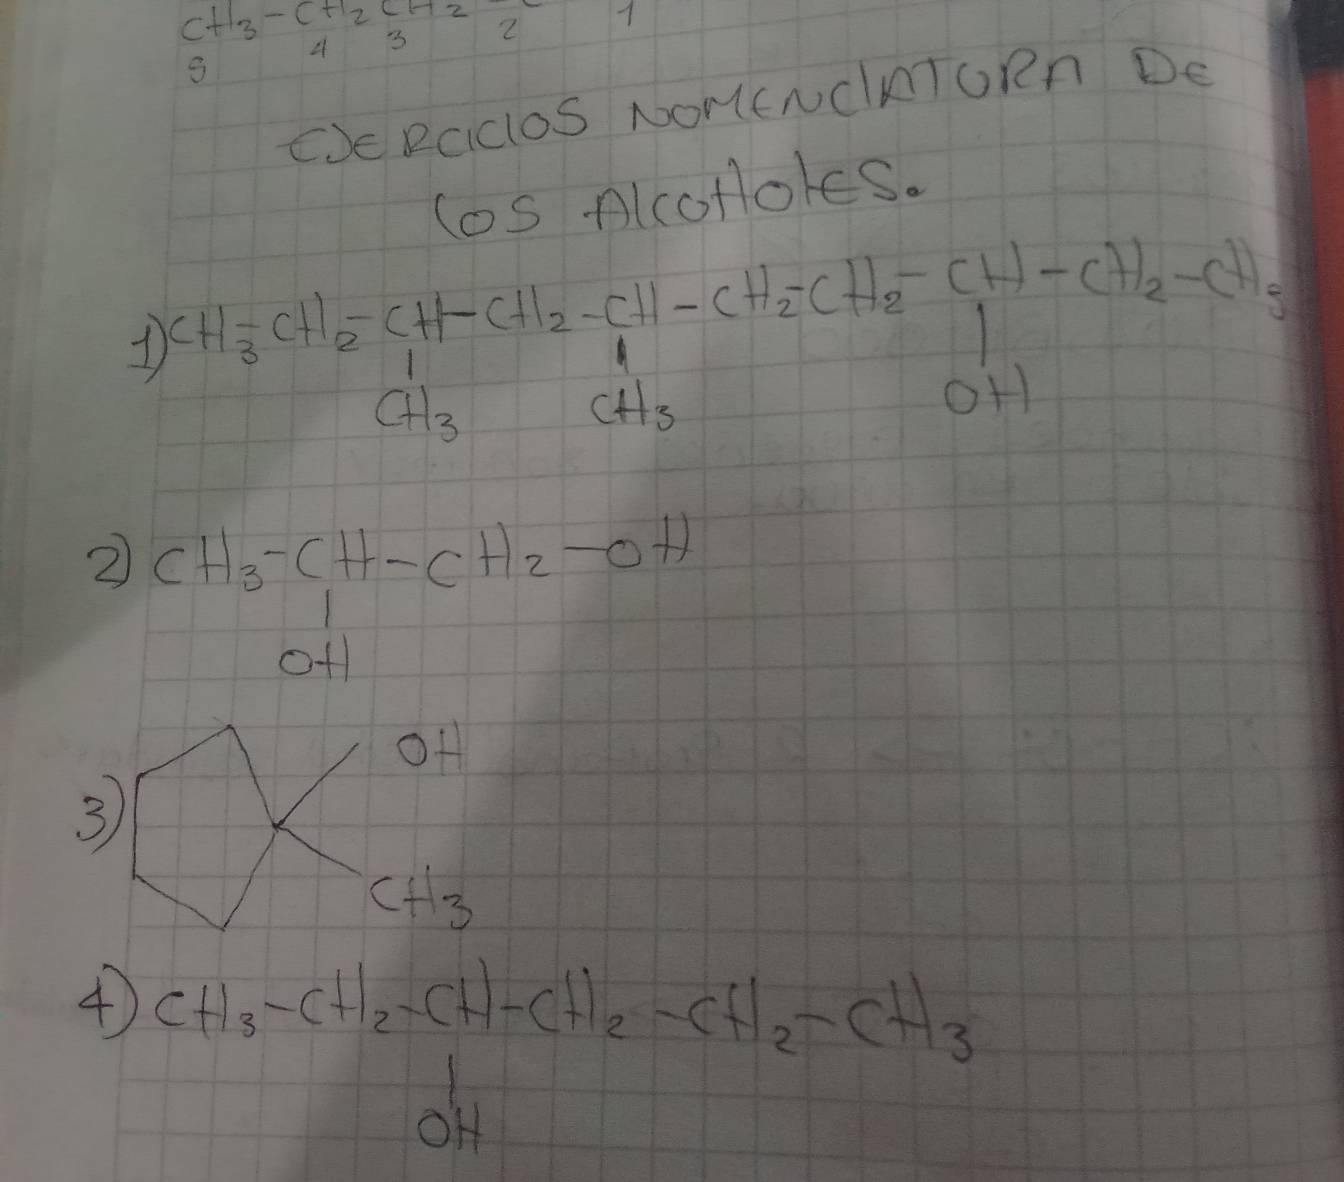 CH3-CH2CH2
5 4 3 2 1
EJERCICIOS NOMENCLATURA DE
LOS AlCOHOLES.
1) CH3-CH2-CH-CH2-CH-CH2-CH2-CH-CH2-CH3
CH3 CH3 OH
2) CH3-CH-CH2-OH
OH
3) OH
CH3
4) CH3-CH2-CH-CH2-CH2-CH3
OH